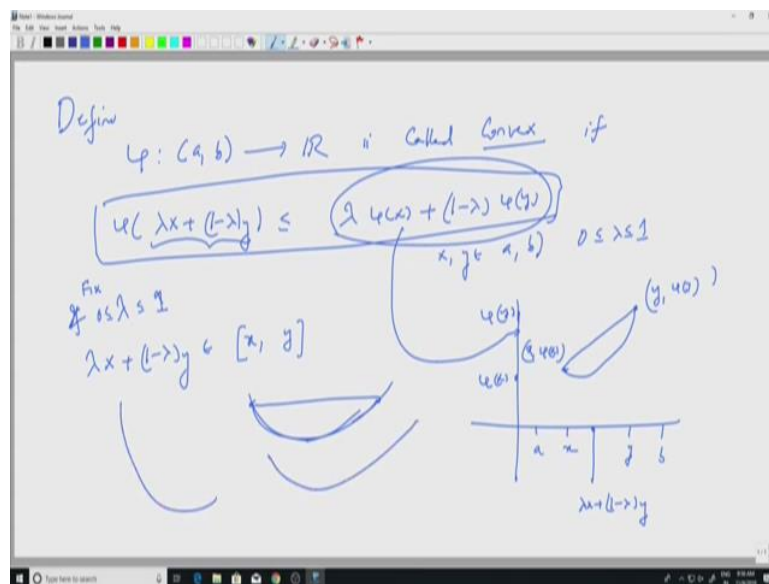 Note1 - Windows Journal
File Edit View Insert Actions Tools Help
Define
φ: (a, b) → IR is called Convex if
φ(λx + (1-λ)y) ≤ λ φ(x) + (1-λ) φ(y)
x, y ∈ a, b) 0 ≤ λ ≤ 1
Fix
0 ≤ λ ≤ 1
λx + (1-λ)y ∈ [x, y]
(y, φ(y))
φ(y)
φ(x)
a x y b
λx + (1-λ)y
Type here to search